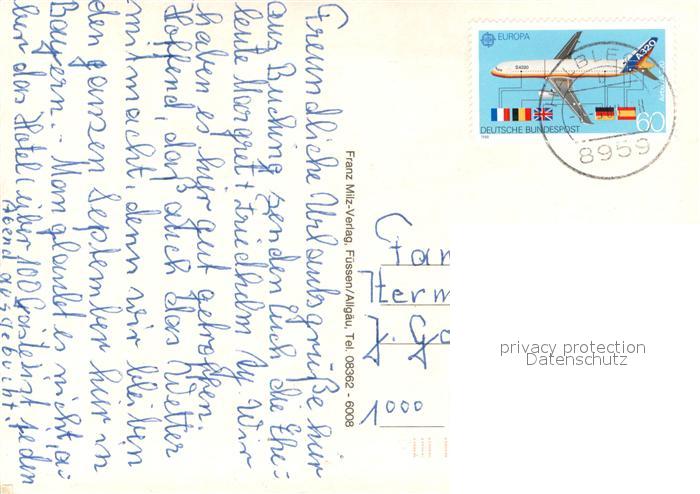 Freundliche Urlaubsgrüße hier
aus Buching senden Euch die Ehe-
leute Margret + Friedhelm Wir
haben es hier gut getroffen.
Hoffend, daß auch das Wetter
mitmacht, denn wir bleiben
den ganzen September hier in
Bayern. Man glaubt es nicht, a-
ber das Hotel über 100 Gäste ist jeden
Abend ausgebucht.
Franz Milz-Verlag, Füssen/Allgäu, Tel. 08362 - 6008
EUROPA
A320
DEUTSCHE BUNDESPOST
60
1988
8959
Fam
Herm
J. Go
1000
privacy protection
Datenschutz